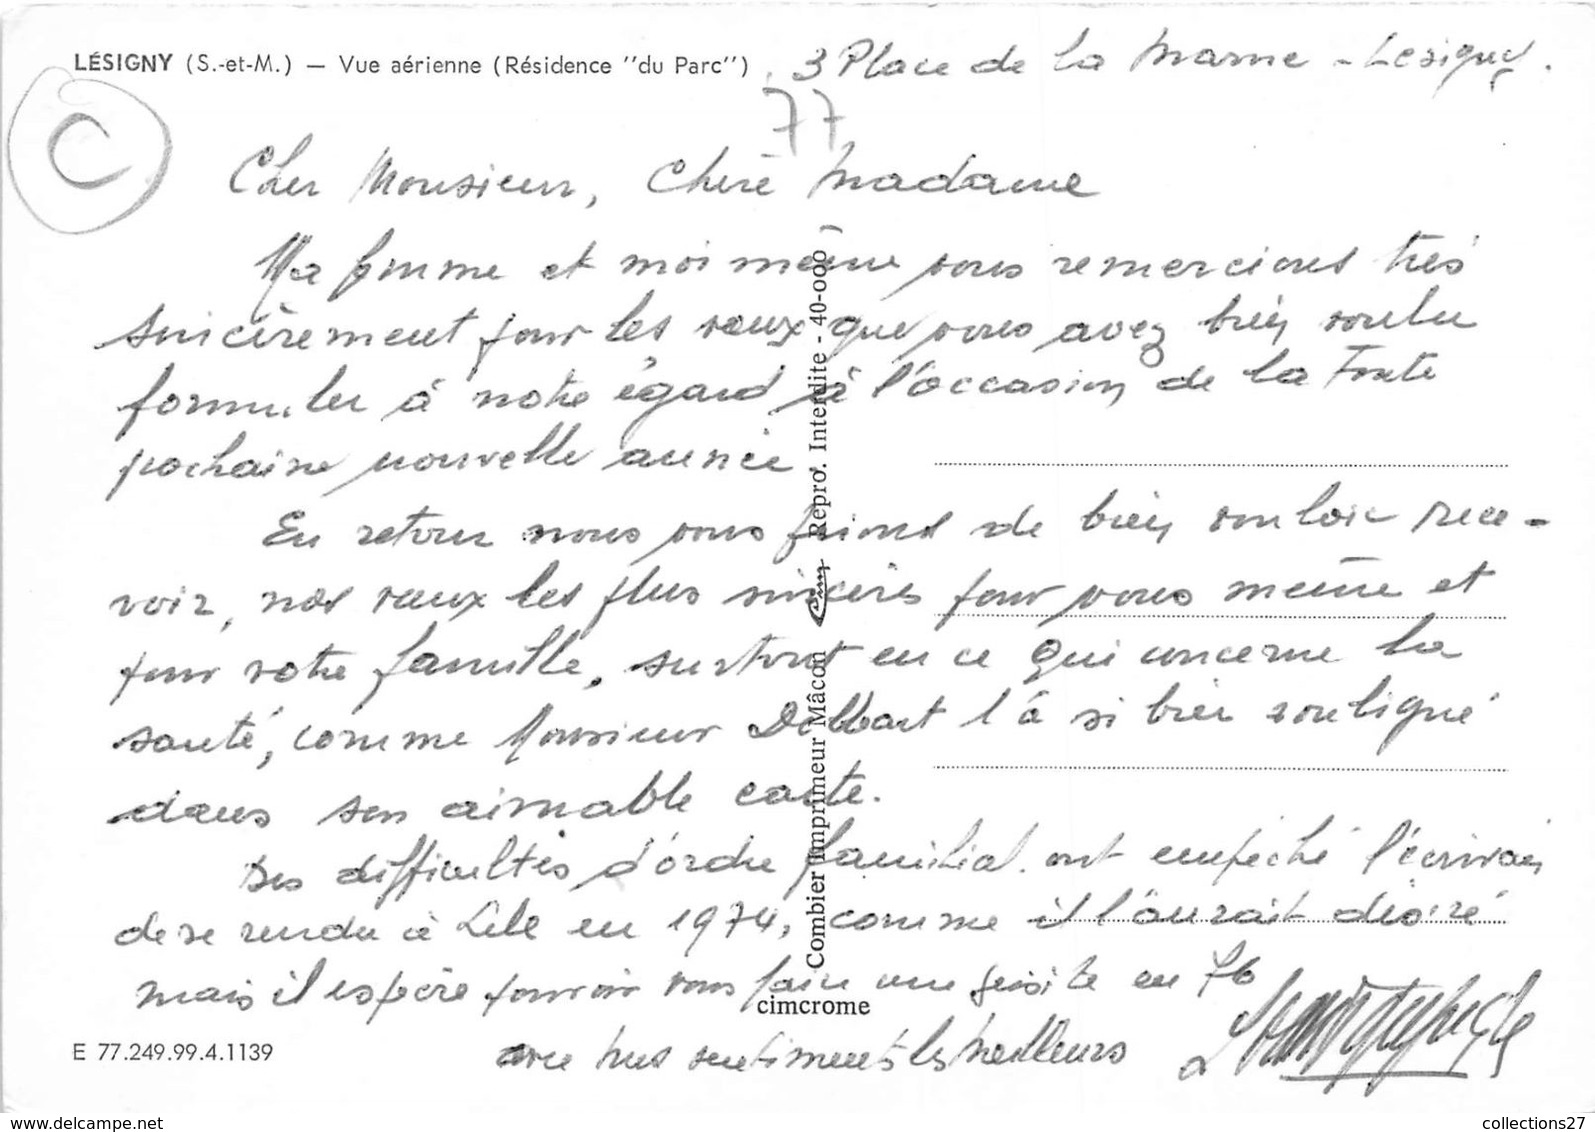 LÉSIGNY (S.-et-M.) — Vue aérienne (Résidence "du Parc")
3 Place de la Marne - Lesigny.
77
C
Cher Monsieur, Chère Madame
Ma femme et moi même vous remercions très
sincèrement pour les vœux que vous avez bien voulu
formuler à notre égard à l'occasion de la Toute
prochaine nouvelle année
En retour nous vous prions de bien vouloir rece-
voir, nos vœux les plus sincères pour vous même et
pour votre famille, surtout en ce qui concerne la
santé, comme Monsieur Delbart l'à si bien souligné
dans son aimable carte.
Des difficultés d'ordre familial ont empêché l'écrivain
de se rendre à Lille en 1974, comme il l'aurait désiré
mais il espère pouvoir vous faire une visite en 76
avec mes sentiments les meilleurs
Combier Imprimeur Mâcon Cim Repro. Interdite - 40-000
cimcrome
E 77.249.99.4.1139
www.delcampe.net
collections27